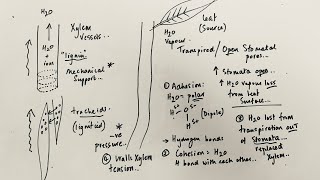 H₂O
Xylem
Vessels..
H₂O
+
ions
"lignin"
mechanical
support..
tracheids
(lignified)
*
-ve
pressure..
⑥ Walls Xylem
tension..
leaf
(Source)
H₂O
Vapour
Transpired/Open Stomatal
pores..
↑ Stomata open..
↑ H₂O vapour loss
from leaf
surface..
① Adhesion:
H₂O = polar
(Dipole)
→ Hydrogen bonds
② Cohesion = H₂O
H bond with each other..
③ H₂O lost from
transpiration out of
Stomata
replaced
Xylem..